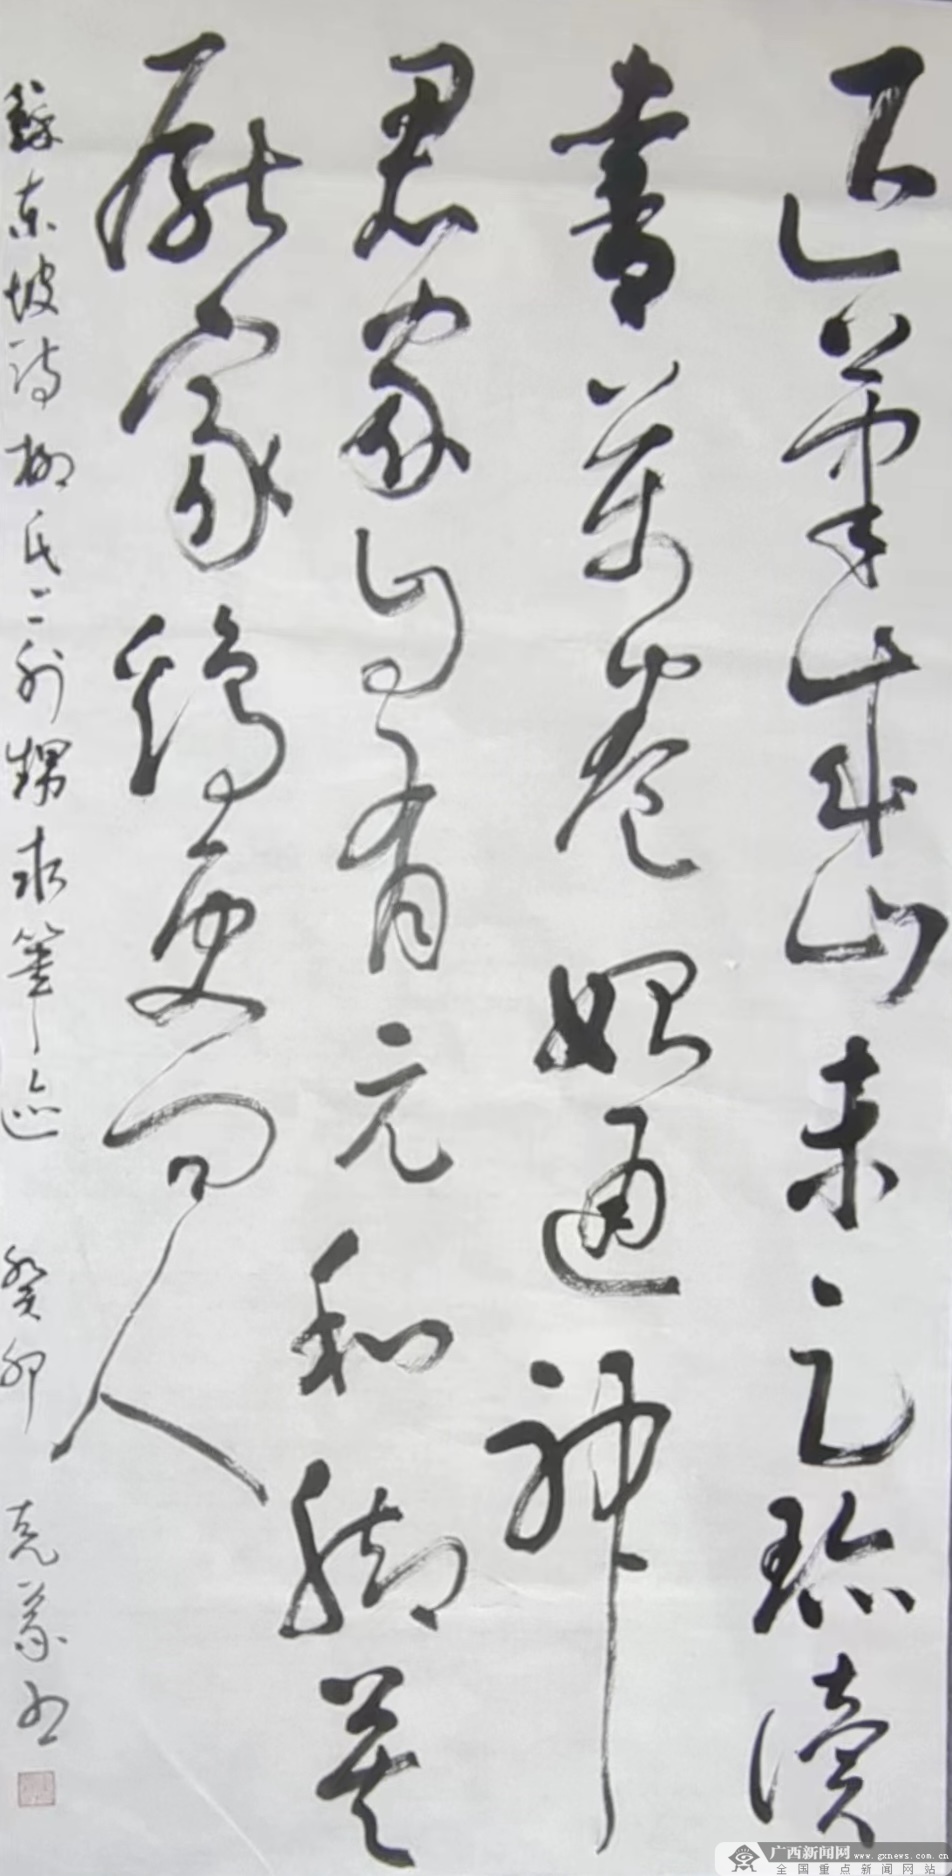 退笔成山未足珍读
书万卷始通神
君家自有元和脚莫
厌家鸡更问人
蘇东坡诗柳氏二外甥求笔迹 癸卯 克義书
广西新闻网 www.gxnews.com.cn
全国重点新闻网站